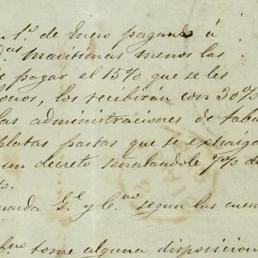 1º. de Enero pagando á
maritimas menos las
pagar el 15% que se les
los recibirán con 30%
las administraciones de taba
platas pastas que se extraiga
un decreto señalandole 7% de
Gl. y Cia. segun las cuen
tome alguna disposicion